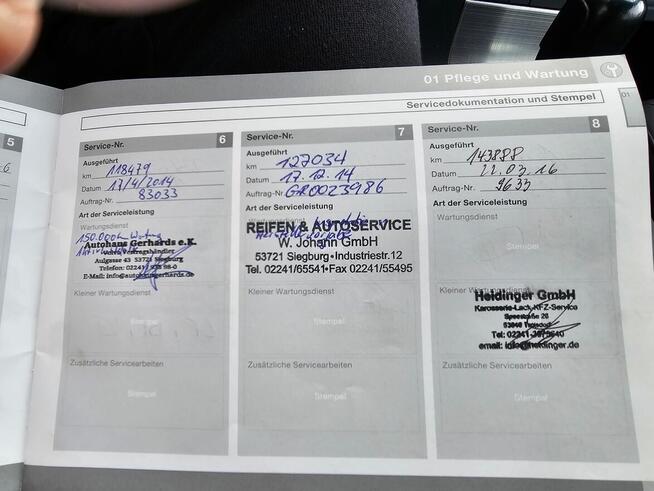 01 Pflege und Wartung
Servicedokumentation und Stempel
01
5
Service-Nr. 6
Ausgeführt
km 118479
Datum 17/4/2014
Auftrag-Nr. 83033
Art der Serviceleistung
Wartungsdienst
150.000
Autohaus Gerhards e.K.
Aulgasse 43 53721 Siegburg
Telefon: 02241
E-Mail: info@autohausgerhards.de
Kleiner Wartungsdienst
Stempel
Zusätzliche Servicearbeiten
Stempel
Service-Nr. 7
Ausgeführt
km 127034
Datum 17.12.14
Auftrag-Nr. GR0023986
Art der Serviceleistung
Wartungsdienst
REIFEN & AUTOSERVICE
W. Johann GmbH
53721 Siegburg•Industriestr.12
Tel. 02241/65541•Fax 02241/55495
Kleiner Wartungsdienst
Stempel
Zusätzliche Servicearbeiten
Stempel
Service-Nr. 8
Ausgeführt
km 143888
Datum 22.03.16
Auftrag-Nr. 9633
Art der Serviceleistung
Wartungsdienst
Stempel
Kleiner Wartungsdienst
Heidinger GmbH
Karosserie-Lack-KFZ-Service
Troisdorf
Tel: 02241
email: info@heidinger.de
Zusätzliche Servicearbeiten
Stempel